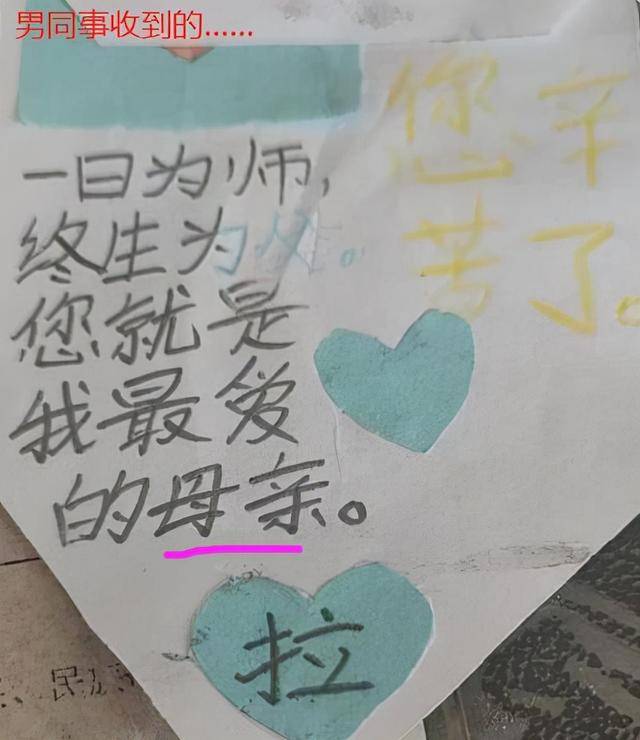 男同事收到的......
一日为师,
终生为为父。
您就是
我最爱
的母亲。
您辛
苦了。
拉